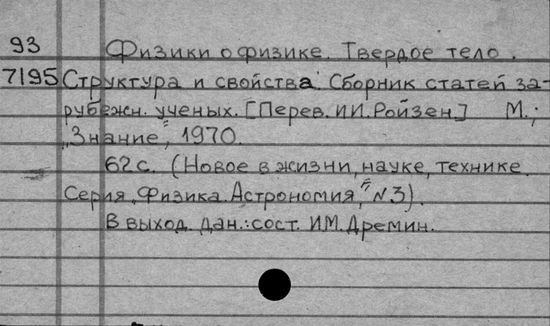 93 Физики о физике. Твердое тело.
7195 Структура и свойства. Сборник статей за-
рубежн. ученых. [Перев. И.И. Ройзен.] М.;
„Знание“, 1970.
62 с. (Новое в жизни, науке, технике.
Серия „Физика. Астрономия“, №3).
В выход. дан.: сост. И.М. Дремин.